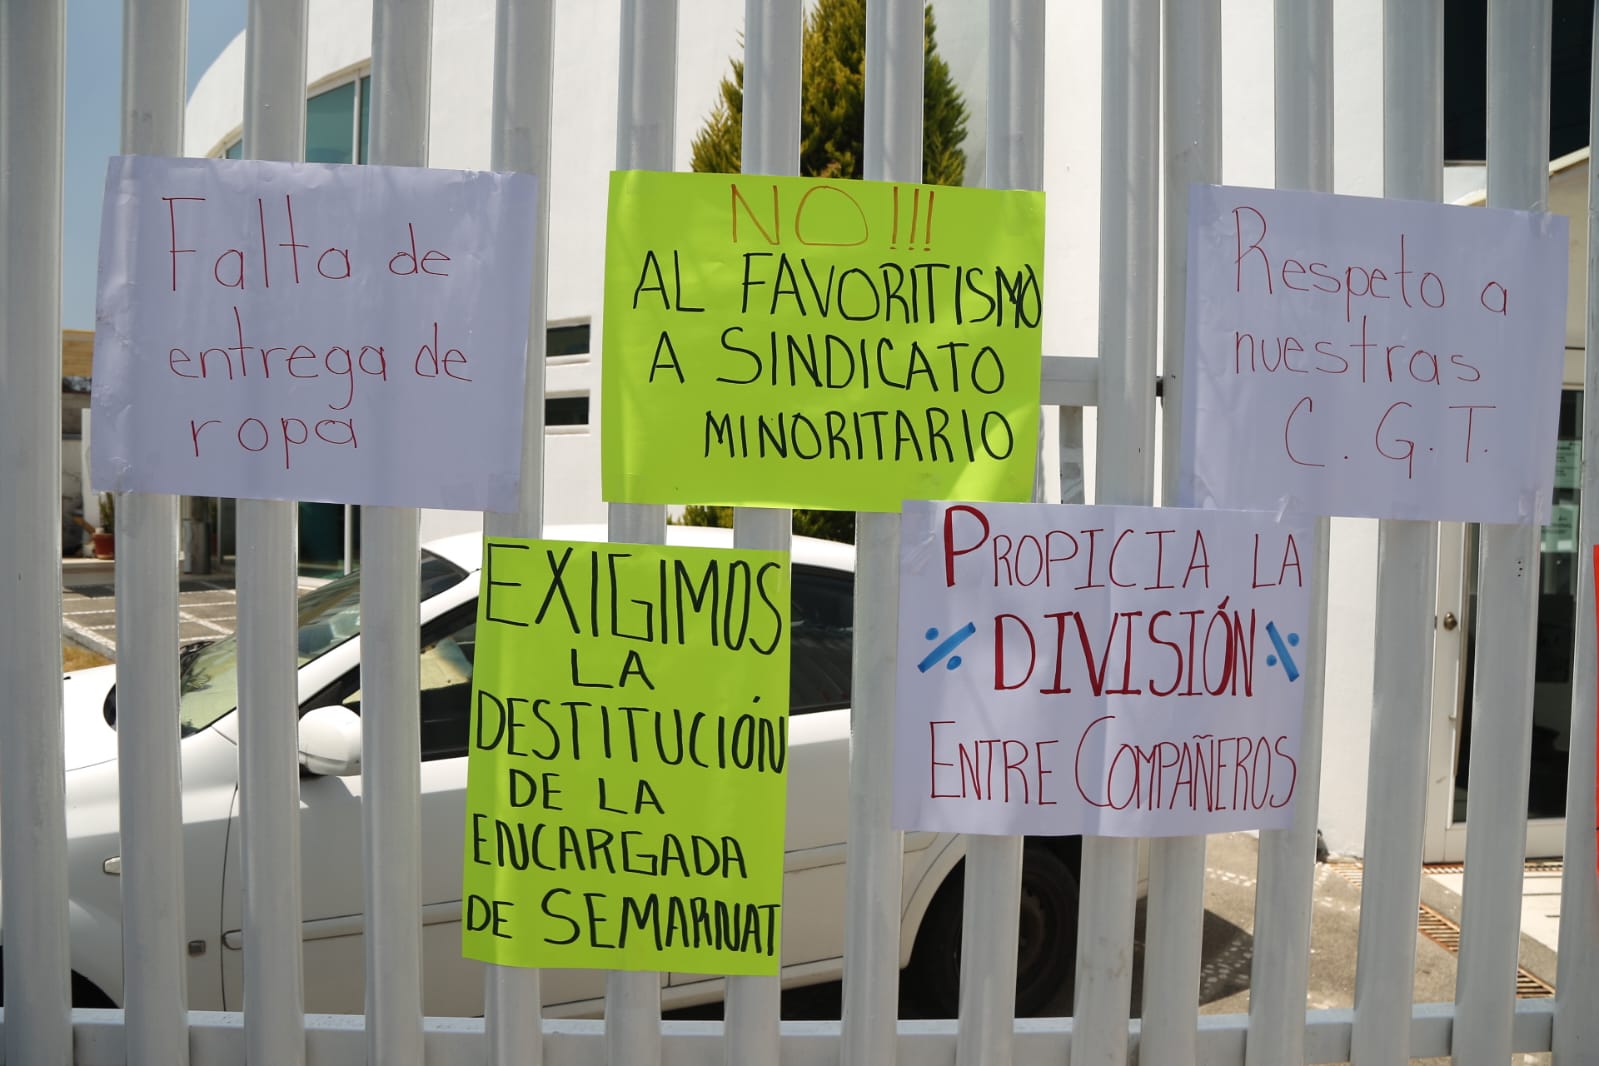 Falta de
entrega de
ropa
NO!!!
AL FAVORITISMO
A SINDICATO
MINORITARIO
Respeto a
nuestras
C.G.T.
EXIGIMOS
LA
DESTITUCIÓN
DE LA
ENCARGADA
DE SEMARNAT
PROPICIA LA
DIVISIÓN
ENTRE COMPAÑEROS